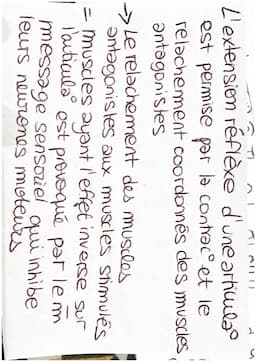 L'extension réflèxe d'une articul°
est permise par la contrac° et le
relachement coordonnés des muscles
antagonistes
→ Le relachement des muscles
antagonistes aux muscles stimulés
= muscles ayant l'effet inverse sur
l'articul° est provoqué par le m̄
message sensoriel qui inhibe
leurs neurones moteurs